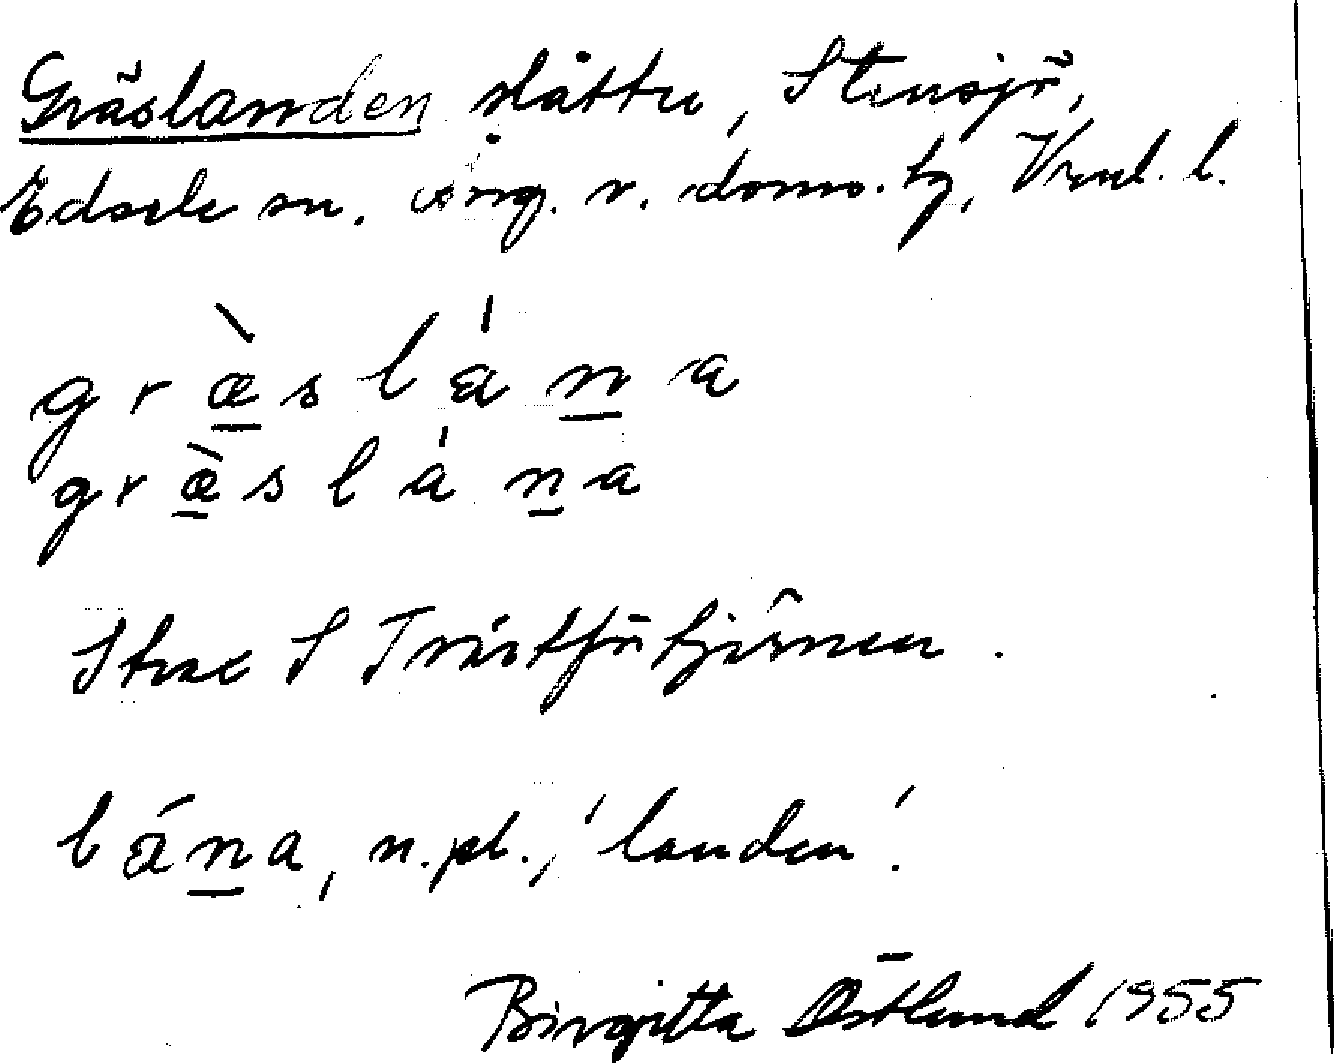 Gräslanden slåtter, Stensjö,
Edsele sn. Ång. v. doms. tg, Vnl. l.
g r æ̀ s l á n a
g r æ̀ s l á n a
Strax S Tväråtjärnen.
lána, n. pl., 'landen'.
Birgitta Östlund 1955